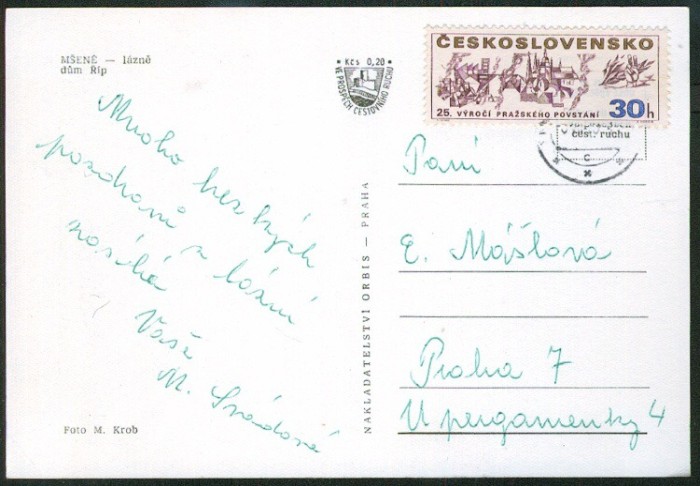 MŠENĚ — lázně
dům Říp
Mnoho hezkých
pozdravů z lázní
zasílá
Vaše
M.
Foto M. Krob
NAKLADATELSTVÍ ORBIS — PRAHA
Kčs 0,20
VE PROSPĚCH CESTOVNÍHO RUCHU
ČESKOSLOVENSKO
25. VÝROČÍ PRAŽSKÉHO POVSTÁNÍ
30h
cest. ruchu
C
Paní
E. Mášlová
Praha 7
U pergamenky 4